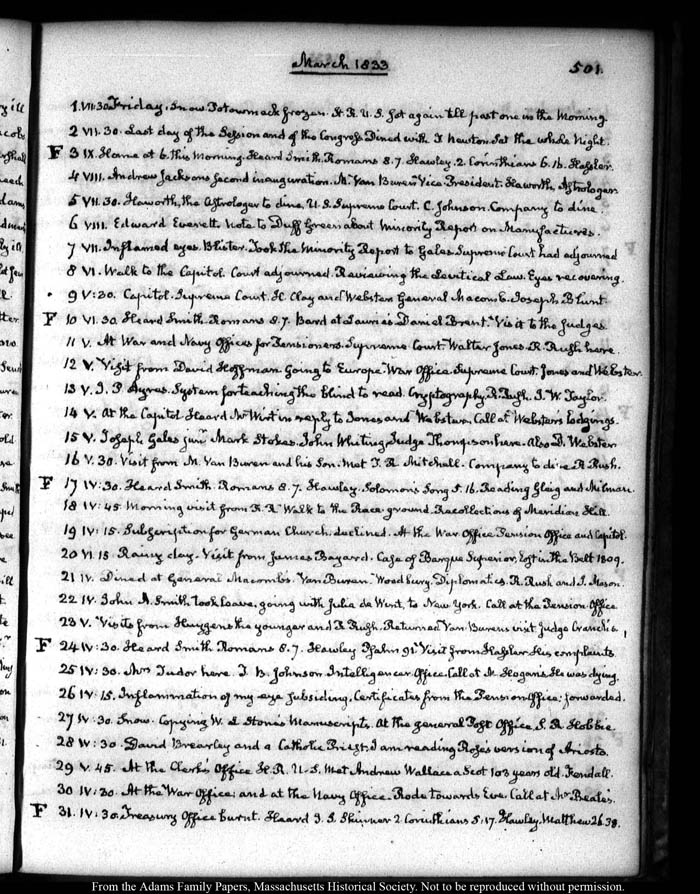 March 1833
501.
1. VII:30 Friday. Snow. Potowmack frozen. H. R. U. S. Sat again till past one in the morning.
2 VII.30. Last day of the Session and of the Congress Dined with I Newton. Sat the whole Night.
F 3 IX. Home at 6. this Morning. Heard Smith. Romans 8.7. Hawley. 2. Corinthians 6.16. Hassler.
4 VIII. Andrew Jacksons second inauguration. M. Van Buren Vice-President. Haworth, Astrologer
5 VII.30. Haworth, the Astrologer to dine. U. S. Supreme Court. C. Johnson. Company to dine.
6 VIII. Edward Everett. Note to Duff Green about Minority Report on Manufactures.
7 VII. Inflamed eyes. Blister. Took the Minority Report to Gales. Supreme Court had adjourned
8 VI. Walk to the Capitol. Court adjourned. Reviewing the Levitical Law. Eyes recovering.
9 V:30. Capitol. Supreme Court. H. Clay and Webster. General Macomb. Joseph Blunt.
F 10 VI.30. Heard Smith. Romans 8.7. Bard at Lauries Daniel Brent. Visit to the Judges
11 V. At War and Navy Offices for Pensioners. Supreme Court. Walter Jones. R. Rush here.
12 V. Visit from David Hoffman going to Europe. War Office. Supreme Court. Jones and Webster.
13 V. I. P. Ayres. System for teaching the blind to read. Cryptography. R. Rush. J. W. Taylor.
14 V. At the Capitol Heard Mr Wirt in reply to Jones and Webster. Call at Webster's Lodgings.
15 V. Joseph Gales junr. Mark Stokes. John Whiting. Judge Thompson here. Also D. Webster
16 V.30. Visit from M. Van Buren and his Son. Met T. R. Mitchell. Company to dine R. Rush.
F 17 IV:30. Heard Smith. Romans 8.7. Hawley. Solomon's Song 5.16. Reading Gleig and Milman.
18 IV:45. Morning visit from R. R. Walk to the Race-ground. Recollections of Meridian Hill.
19 IV:15. Subscription for German Church, declined. At the War Office Pension Office and Capitol.
20 VI.15. Rainy day. Visit from James Bayard. Case of Barque Superior, in the Belt 1809.
21 IV. Dined at General Macomb's. Van Buren. Woodbury. Diplomatics. R. Rush and J. Mason.
22 IV. John A. Smith took leave, going with Julia de Wint, to New York. Call at the Pension Office
23 V. Visits from Huygens the younger and R Rush. Returned Van Burens visit Judge Cranch's
F 24 IV:30. Heard Smith Romans 8.7. Hawley Psalm 91. Visit from Hassler His complaints
25 IV:30. Mrs Tudor here. I. B. Johnson. Intelligencer Office. Call at M. Hogan's He was dying.
26 IV:15. Inflammation of my eye subsiding. Certificates from the Pension Office, forwarded.
27 IV:30 Snow. Copying W. L Stone's Manuscripts. At the general Post Office, S. R. Hobbie.
28 IV:30. David Brearley and a Catholic Priest. I am reading Rose's version of Ariosto.
29 V.45. At the Clerk's Office H.R. U.S. Met Andrew Wallace a Scot 103 years old. Fendall.
30 IV:30. At the War Office, and at the Navy Office. Rode towards Eve. Call at Mr Beale's.
F 31. IV:30. Treasury Office burnt. Heard I. S. Skinner 2 Corinthians 5.17. Hawley. Matthew 26.38.
From the Adams Family Papers, Massachusetts Historical Society. Not to be reproduced without permission.